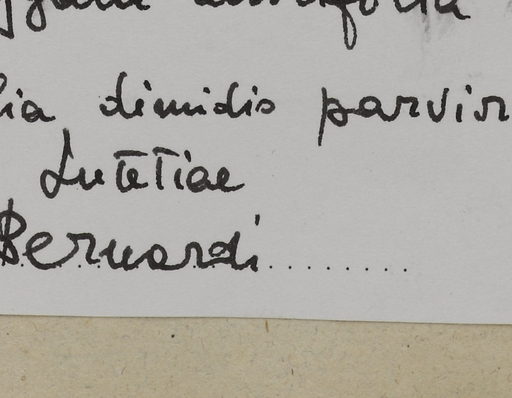 lia dimidio parvir
Lutetiae
Bernardi..........